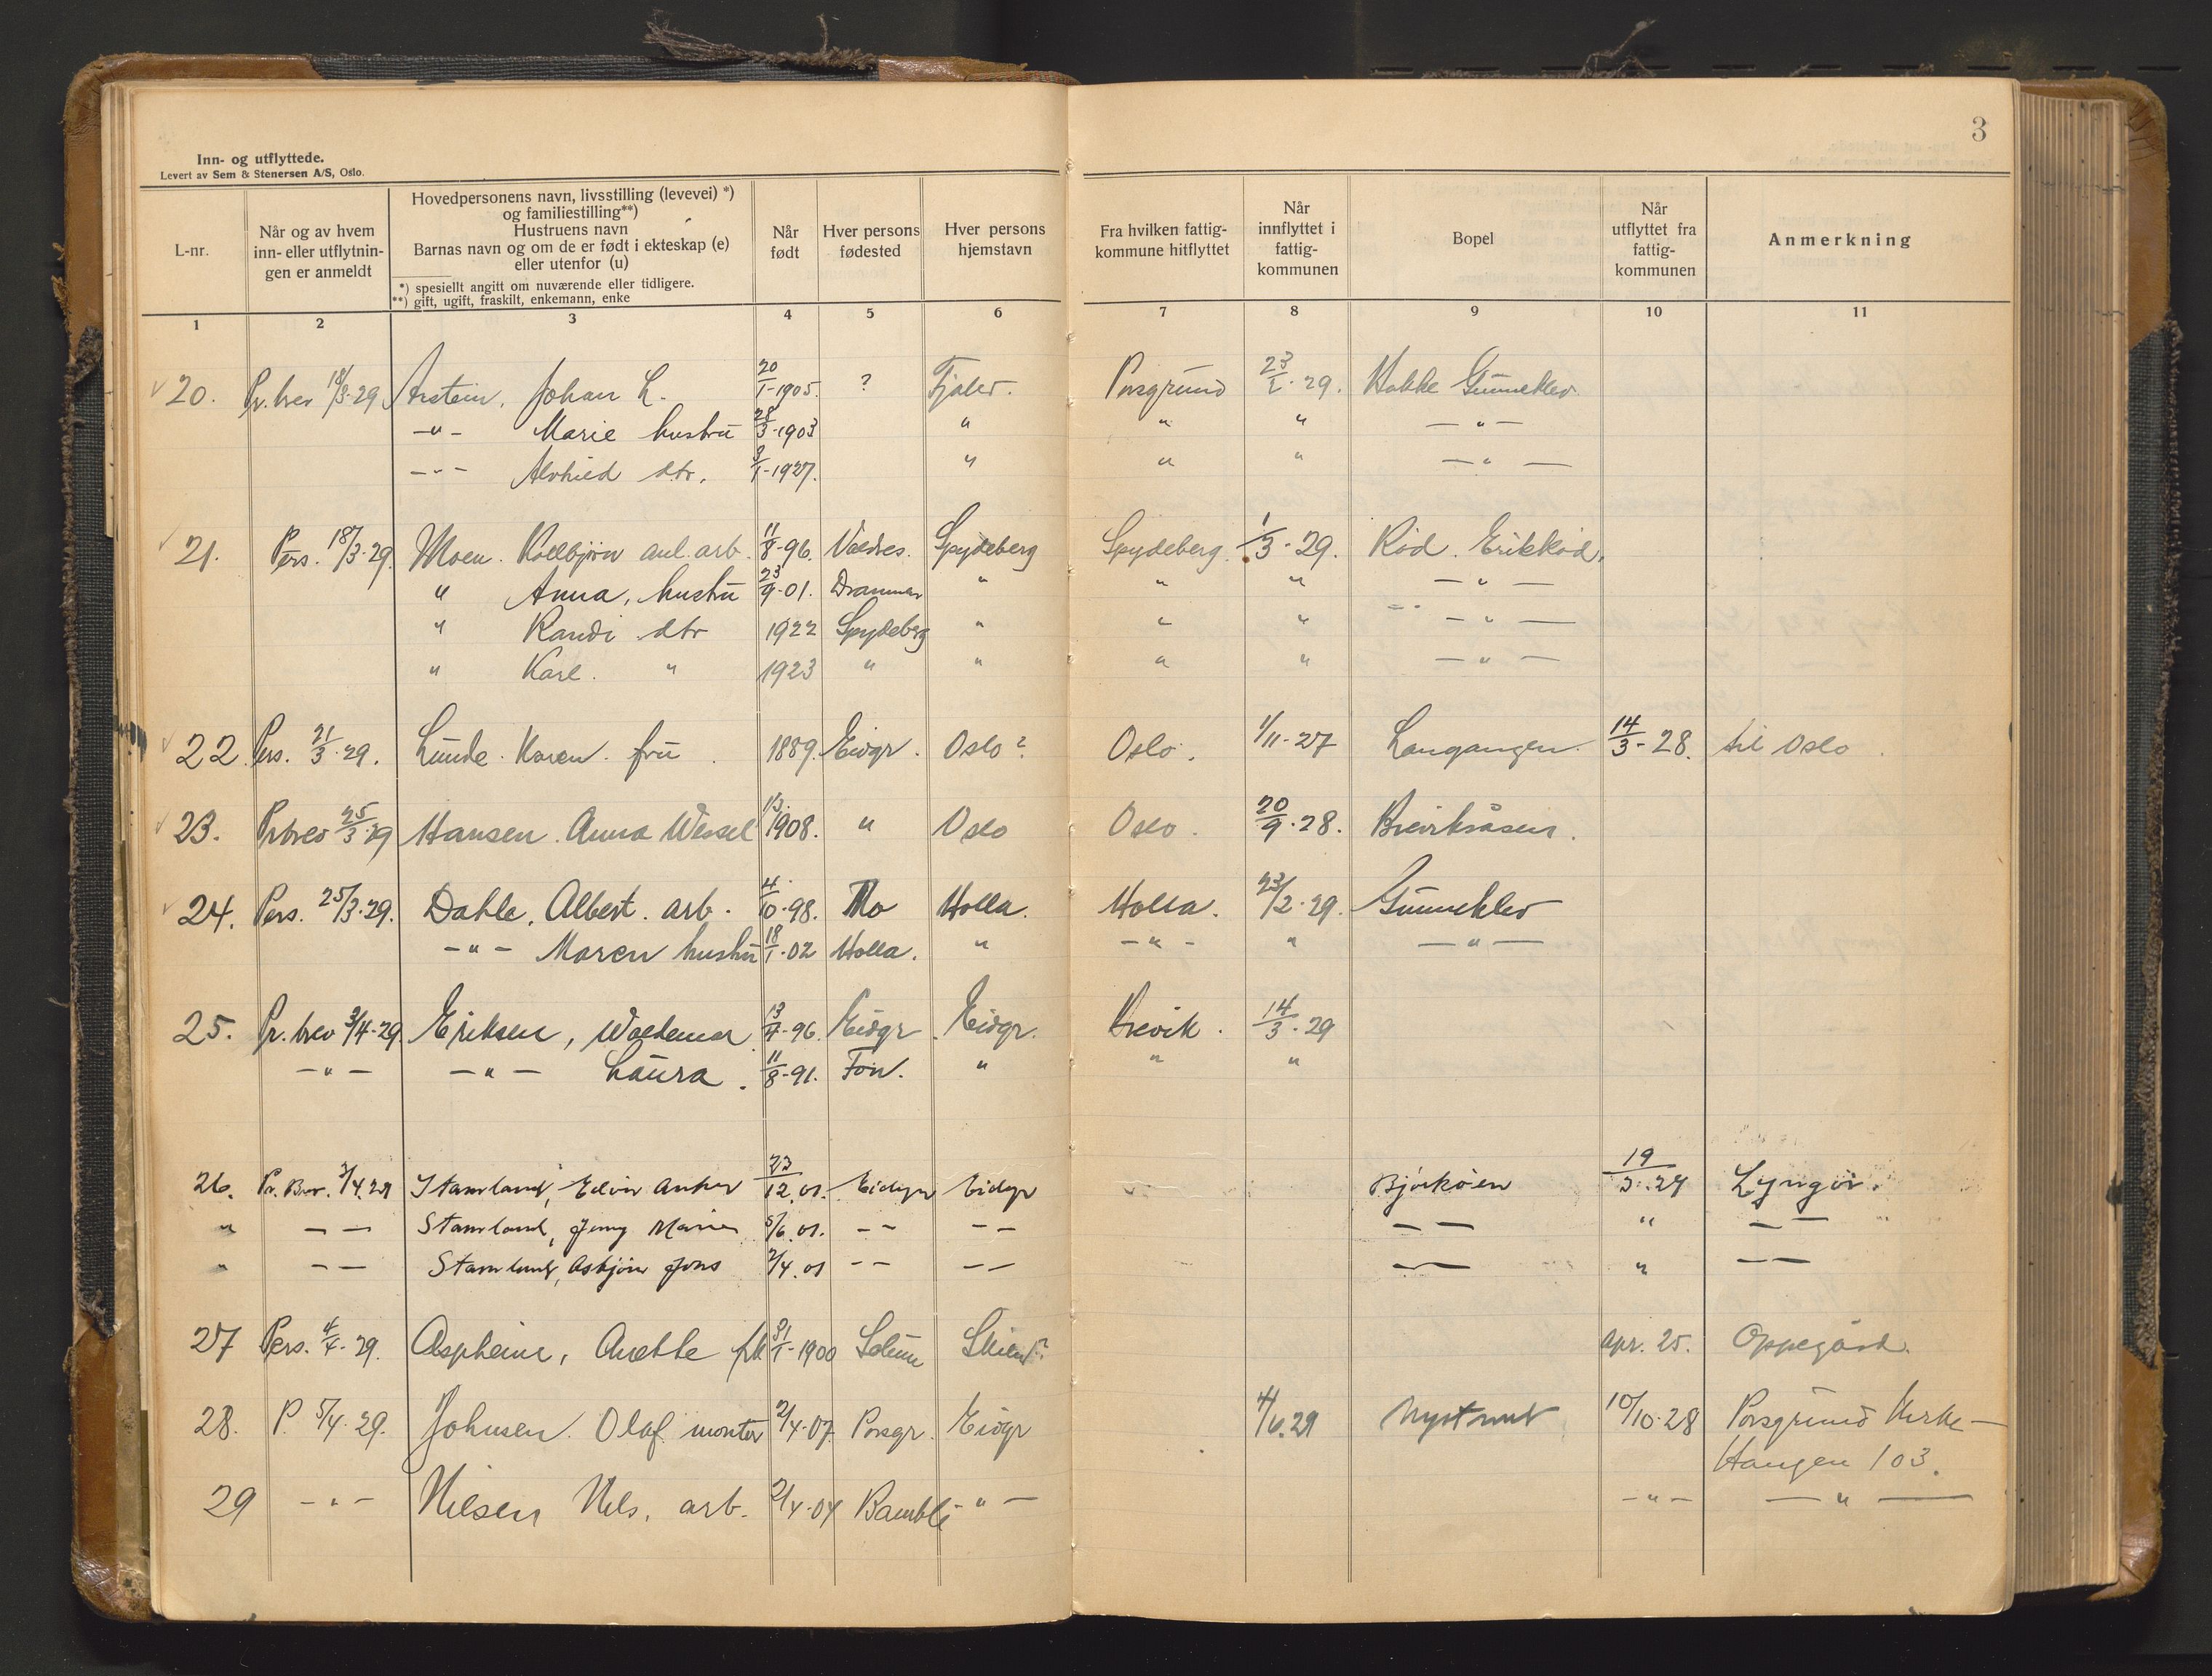 3
Inn- og utflyttede.
Levert av Sem & Stenersen A/S, Oslo.
L-nr.
Når og av hvem
inn- eller utflytnin-
gen er anmeldt
Hovedpersonens navn, livsstilling (levevei) *)
og familiestilling**)
Hustruens navn
Barnas navn og om de er født i ekteskap (e)
eller utenfor (u)
*) spesiellt angitt om nuværende eller tidligere.
**) gift, ugift, fraskilt, enkemann, enke
Når
født
Hver persons
fødested
Hver persons
hjemstavn
Fra hvilken fattig-
kommune hitflyttet
Når
innflyttet i
fattig-
kommunen
Bopel
Når
utflyttet fra
fattig-
kommunen
Anmerkning
1 2 3 4 5 6 7 8 9 10 11
20. Pr. brev 18/3-29 Arstein, Johan L. 20/1-1905. ? Fjaler. Porsgrund 23/1-29. Hakke Gunneklev
-"- Marie hustru 28/3-1903 " " " -"-
-"- dtr. 3/1-1927. " " " -"-
21. Pers. 18/3-29. Moen. Kolbjørn anl. arb. 11/8-96. Valdres. Spydeberg Spydeberg. 1/3-29. Rød. Erikrød.
" Anna, hustru 23/9-01. Drammen " " " -"-
" Randi dtr 1922 Spydeberg " " " -"-
" Kare. " 1923 " " " " -"-
22. Pers. 21/3-29. Lunde. Karen. fru. 1889. Eidgr. Oslo? Oslo. 1/11-27 Langangen. 14/3-28. til Oslo.
23. Pr brev 25/3-29 Hansen. Anna Wessel 1908. " Oslo Oslo. 20/9-28. Breviksåsen.
24. Pers. 25/3-29. Dahle. Albert. arb. 4/10-98. Mo Holla. Holla. 23/2-29. Gunneklev
-"- Maren hustru 18/1-02 Holla. " -"- " -"-
25. Pr. brev 3/4-29. Eriksen, Waldemar 13/4-96. Eidgr Eidgr. Brevik. 14/3-29
-"- -"- Laura. 11/8-91. " " "
26. Pr. Brev. 3/4.29 Stamland, Edvin Anker 23/12.01. Eidgr Eidgr Bjørkøen 19/3.29 Lyngør.
" — — Stamland, Jenny Marie 5/6.01. — — — — — — " — —
" — — Stamland, Asbjørn Jons 2/4.01 — — — — — — " — —
27 Pers. 4/4-29. Aspheim, Anette frk 31/1-1900 Solum Skien? apr. 25. Oppegård.
28. P. 5/4-29. Johnsen. Olaf montør 2/4-07. Porsgr. Eidgr 4/6.29 Nystrand 10/10-28 Porsgrund Kirke-
Haugen 103.
29 -"- Nilsen Nils, arb. 2/4-04 Bamble -"- -"- -"-